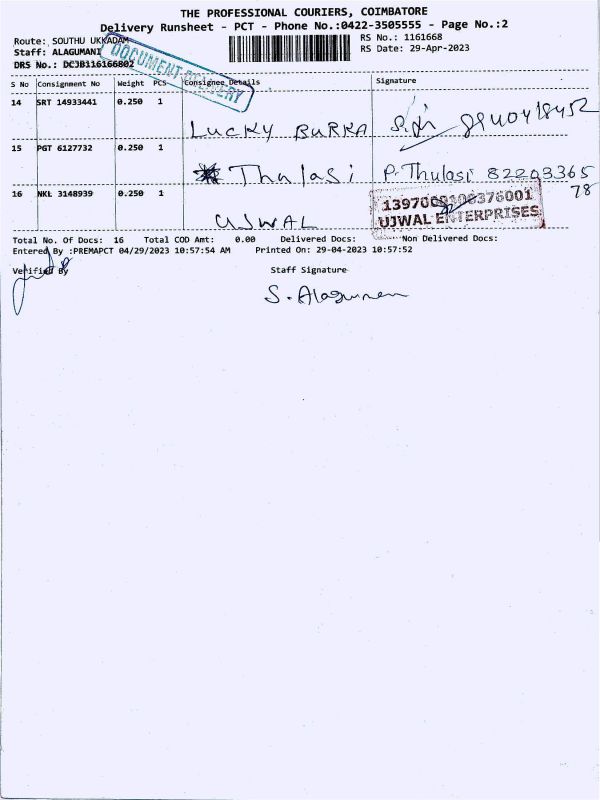 THE PROFESSIONAL COURIERS, COIMBATORE
Delivery Runsheet - PCT - Phone No.:0422-3505555 - Page No.:2
Route: SOUTHU UKKADAM
RS No.: 1161668
Staff: ALAGUMANI
RS Date: 29-Apr-2023
DRS No.: DCJB116166802
DOCUMENT DELIVERY
S No Consignment No Weight PCS Consignee Details Signature
14 SRT 14933441 0.250 1
LUCKY BURKA
15 PGT 6127732 0.250 1
Thulasi P. Thulasi 82203365
78
16 NKL 3148939 0.250 1
UJWAL
UJWAL ENTERPRISES
Total No. Of Docs: 16 Total COD Amt: 0.00 Delivered Docs: Non Delivered Docs:
Entered By :PREMAPCT 04/29/2023 10:57:54 AM Printed On: 29-04-2023 10:57:52
Verified By Staff Signature